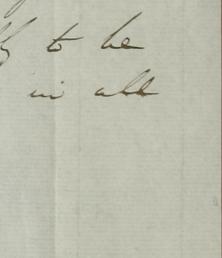 to be
in all